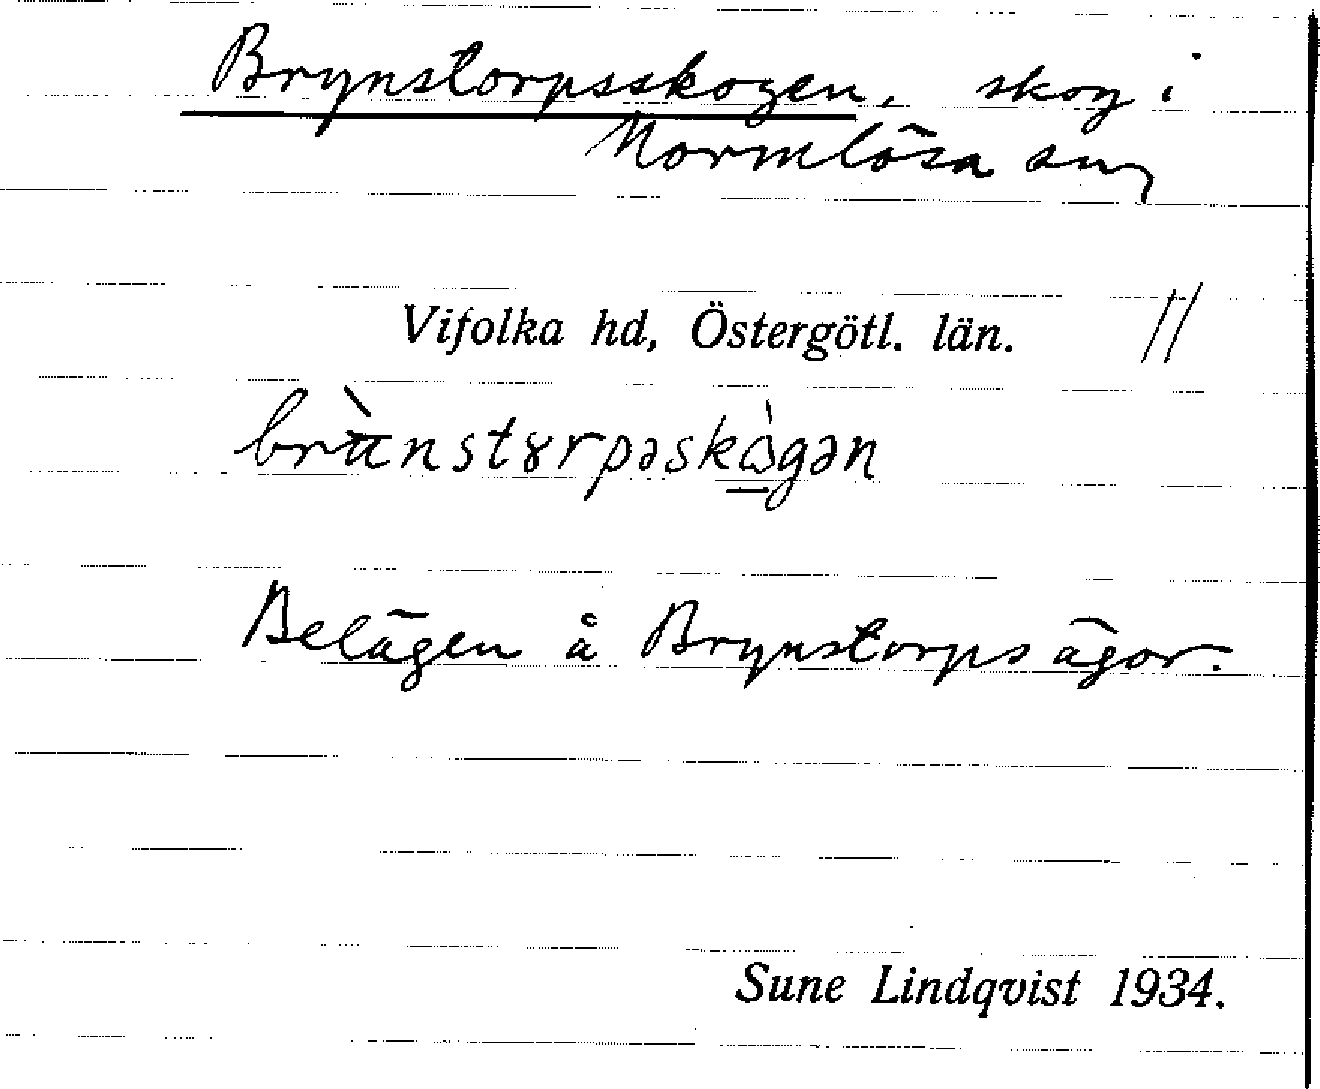 Brynstorpsskogen, skog i
Normlösa sn,
Vifolka hd, Östergötl. län. //
Belägen å Brynstorps ägor.
Sune Lindqvist 1934.